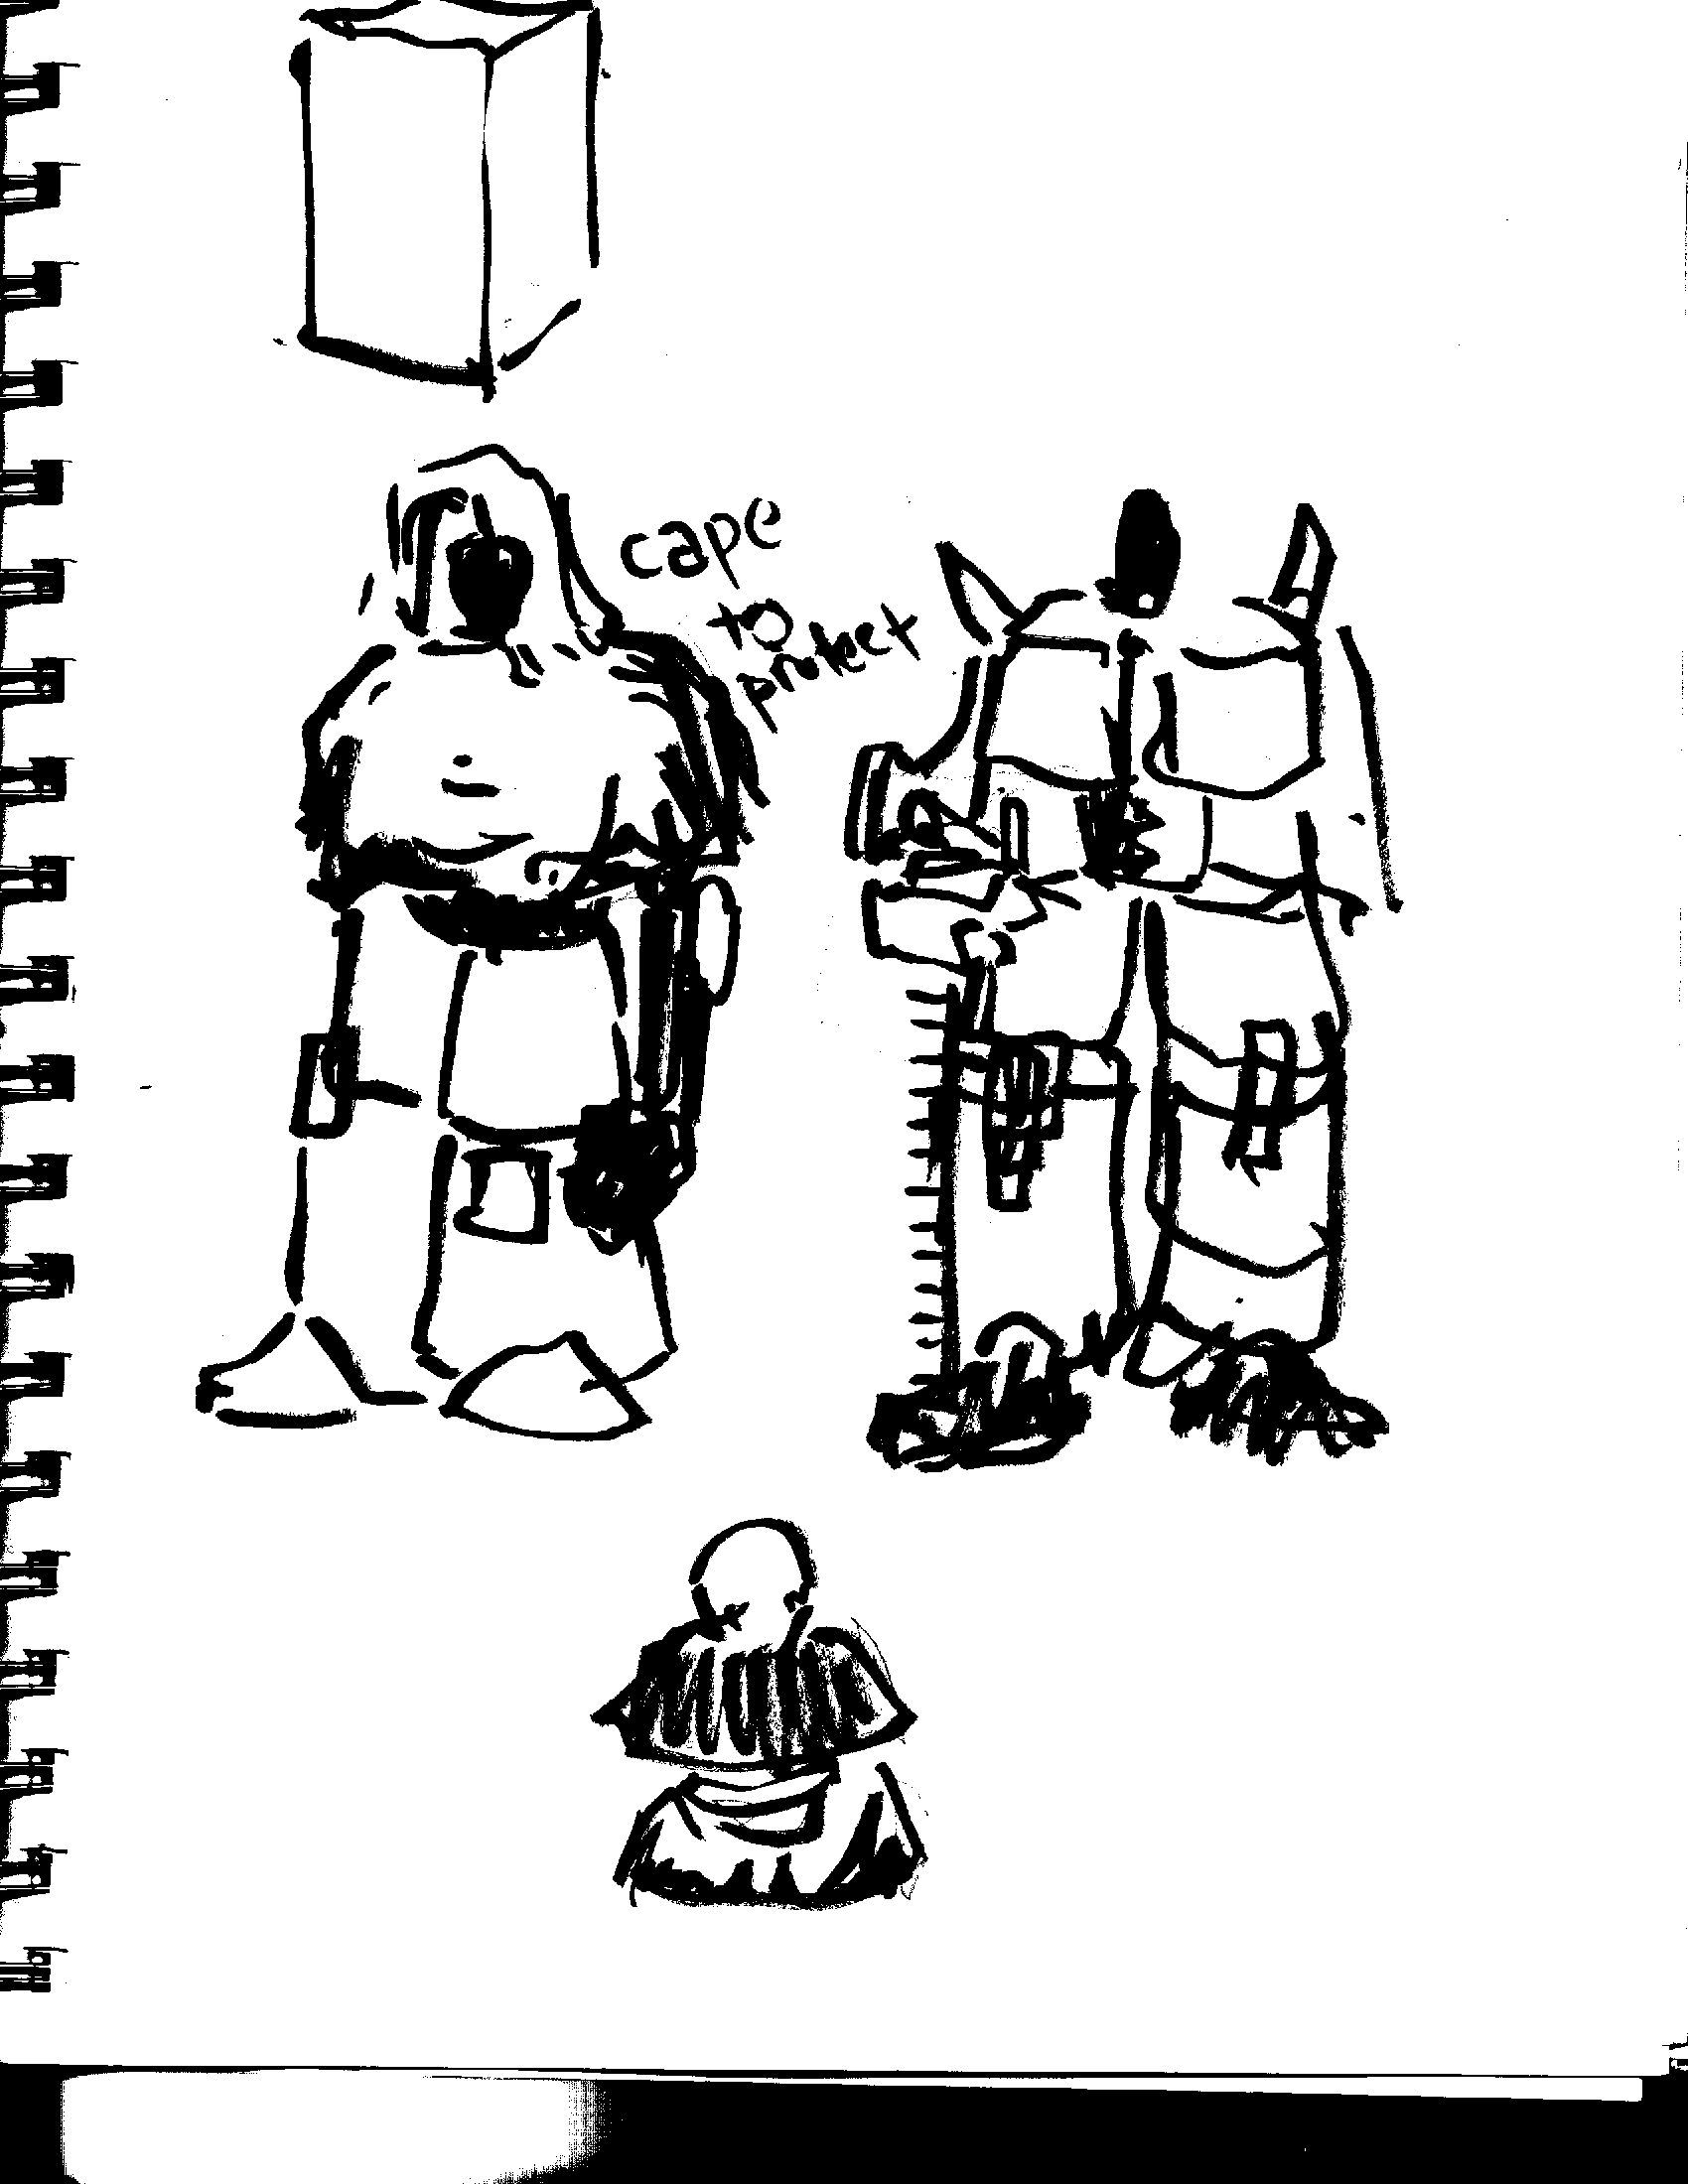 cape
to
protect